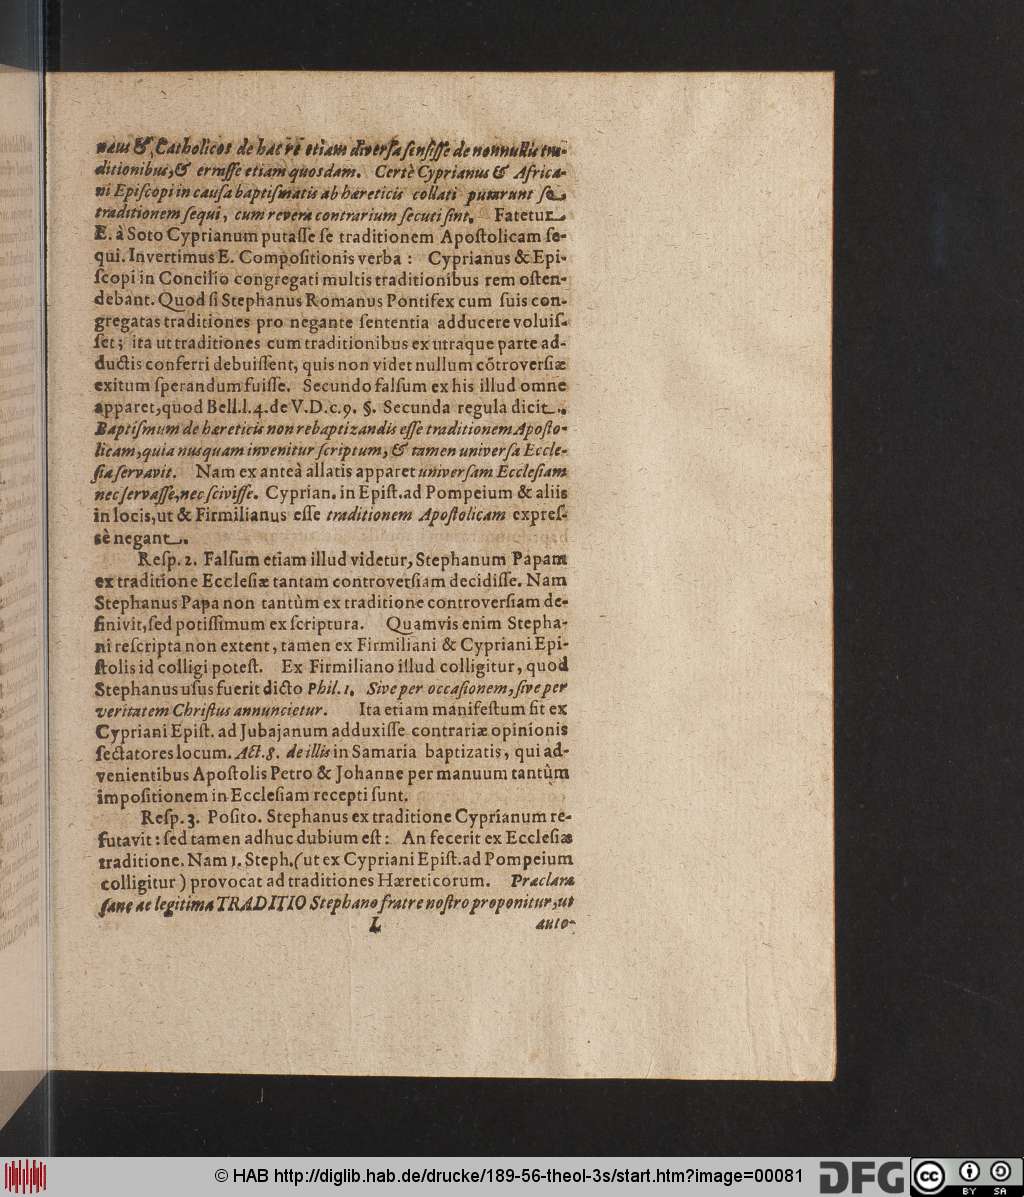 naus & Catholicos de hac re etiam diversa sensisse de nonnullis tra-
ditionibus, & errasse etiam quosdam. Certè Cyprianus & Africa-
ni Episcopi in causa baptismatis ab hæreticis collati putarunt se
traditionem sequi, cum revera contrarium secuti sint. Fatetur
E. à Soto Cyprianum putasse se traditionem Apostolicam se-
qui. Invertimus E. Compositionis verba : Cyprianus & Epi-
scopi in Concilio congregati multis traditionibus rem osten-
debant. Quod si Stephanus Romanus Pontifex cum suis con-
gregatas traditiones pro negante sententia adducere voluis-
set; ita ut traditiones cum traditionibus ex utraque parte ad-
ductis conferri debuissent, quis non videt nullum cõtroversiæ
exitum sperandum fuisse. Secundo falsum ex his illud omne
apparet, quod Bell.l.4.de V.D.c.9. §. Secunda regula dicit.
Baptismum de hæreticis non rebaptizandis esse traditionem Aposto-
licam, quia nusquam invenitur scriptum, & tamen universa Eccle-
sia servavit. Nam ex anteà allatis apparet universam Ecclesiam
nec servasse, nec scivisse. Cyprian. in Epist. ad Pompeium & aliis
in locis, ut & Firmilianus esse traditionem Apostolicam expres-
sè negant.
Resp. 2. Falsum etiam illud videtur, Stephanum Papam
ex traditione Ecclesiæ tantam controversiam decidisse. Nam
Stephanus Papa non tantùm ex traditione controversiam de-
finivit, sed potissimum ex scriptura. Quamvis enim Stepha-
ni rescripta non extent, tamen ex Firmiliani & Cypriani Epi-
stolis id colligi potest. Ex Firmiliano illud colligitur, quod
Stephanus usus fuerit dicto Phil. 1. Sive per occasionem, sive per
veritatem Christus annuncietur. Ita etiam manifestum sit ex
Cypriani Epist. ad Jubajanum adduxisse contrariæ opinionis
sectatores locum. Act. 8. de illis in Samaria baptizatis, qui ad-
venientibus Apostolis Petro & Johanne per manuum tantùm
impositionem in Ecclesiam recepti sunt.
Resp. 3. Posito. Stephanus ex traditione Cyprianum re-
futavit : sed tamen adhuc dubium est : An fecerit ex Ecclesiæ
traditione. Nam 1. Steph. (ut ex Cypriani Epist. ad Pompeium
colligitur) provocat ad traditiones Hæreticorum. Præclara
sane ac legitima TRADITIO Stephano fratre nostro proponitur, ut
L auto-
© HAB http://diglib.hab.de/drucke/189-56-theol-3s/start.htm?image=00081 DFG cc BY SA